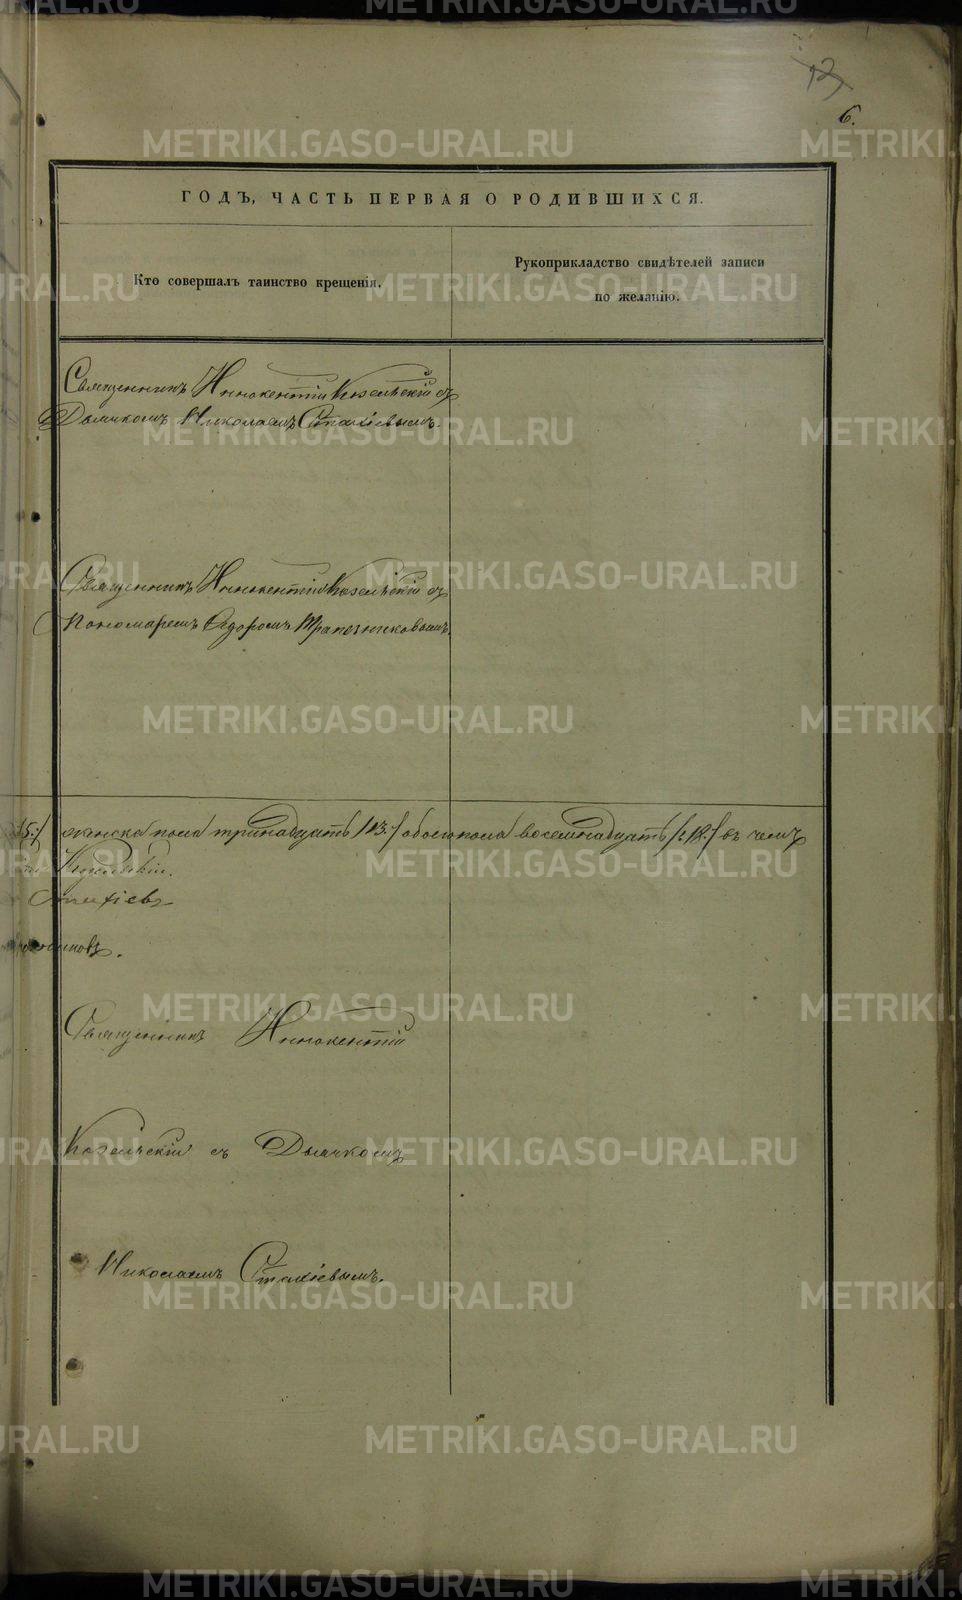 12
6.
ГОДЪ, ЧАСТЬ ПЕРВАЯ О РОДИВШИХСЯ.
Кто совершалъ таинство крещенія.
Рукоприкладство свидѣтелей записи
по желанію.
Священникъ Иннокентій Козельскій съ
Дьячкомъ Николаемъ Стахіевымъ.
Священникъ Иннокентій Козельскій съ
Пономаремъ Ѳедоромъ Трапезниковымъ.
5:/ женска пола тринадцать /:13:/ обоего пола восемнадцать /:18:/ въ чемъ
Стахіевъ
Священникъ Иннокентій
Козельскій съ Дьячкомъ
Николаемъ Стахіевымъ.
METRIKI.GASO-URAL.RU